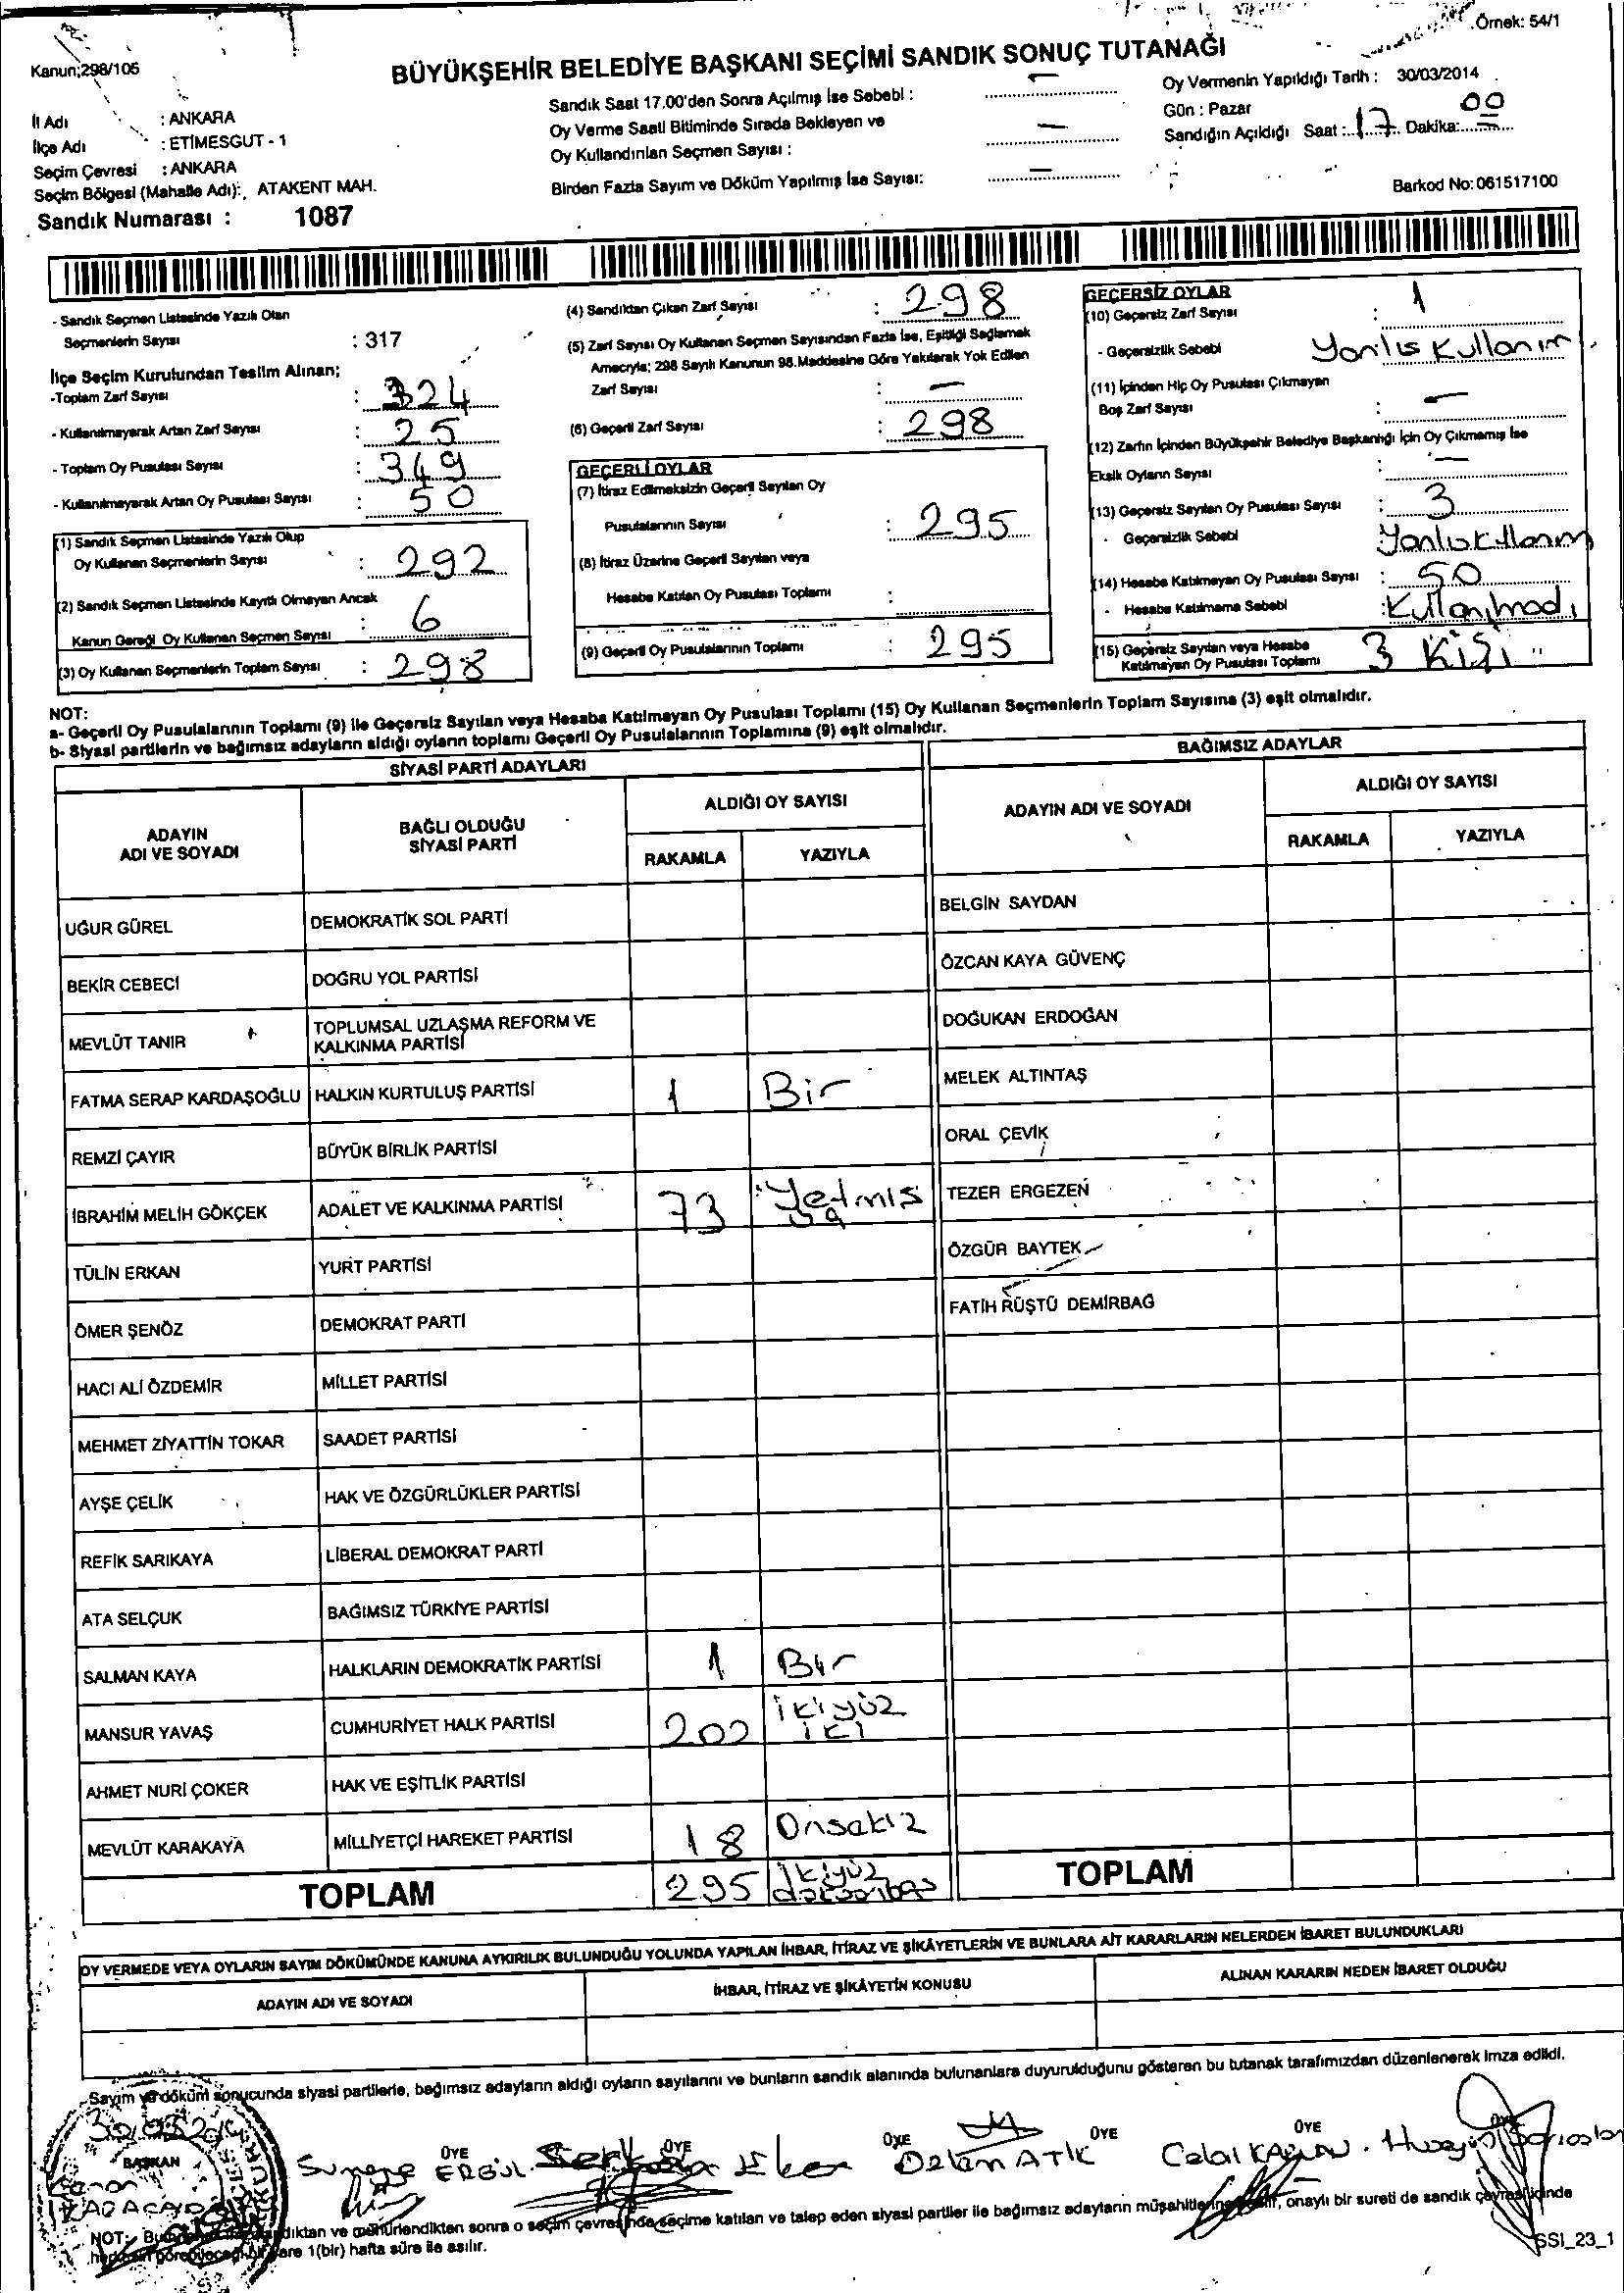 Örnek: 54/1
Kanun;298/105
BÜYÜKŞEHİR BELEDİYE BAŞKANI SEÇİMİ SANDIK SONUÇ TUTANAĞI
İl Adı : ANKARA
İlçe Adı : ETİMESGUT - 1
Seçim Çevresi : ANKARA
Seçim Bölgesi (Mahalle Adı): ATAKENT MAH.
Sandık Numarası : 1087
Sandık Saat 17.00'den Sonra Açılmış İse Sebebi : —
Oy Verme Saati Bitiminde Sırada Bekleyen ve
Oy Kullandırılan Seçmen Sayısı : —
Birden Fazla Sayım ve Döküm Yapılmış İse Sayısı: —
Oy Vermenin Yapıldığı Tarih : 30/03/2014
Gün : Pazar
Sandığın Açıldığı Saat : 17 Dakika: 00
Barkod No: 061517100
- Sandık Seçmen Listesinde Yazılı Olan
Seçmenlerin Sayısı : 317
İlçe Seçim Kurulundan Teslim Alınan;
-Toplam Zarf Sayısı : 324
- Kullanılmayarak Artan Zarf Sayısı : 25
- Toplam Oy Pusulası Sayısı : 349
- Kullanılmayarak Artan Oy Pusulası Sayısı : 50
(1) Sandık Seçmen Listesinde Yazılı Olup
Oy Kullanan Seçmenlerin Sayısı : 292
(2) Sandık Seçmen Listesinde Kayıtlı Olmayan Ancak
Kanun Gereği Oy Kullanan Seçmen Sayısı : 6
(3) Oy Kullanan Seçmenlerin Toplam Sayısı : 298
(4) Sandıktan Çıkan Zarf Sayısı : 298
(5) Zarf Sayısı Oy Kullanan Seçmen Sayısından Fazla İse, Eşitliği Sağlamak
Amacıyla; 298 Sayılı Kanunun 98.Maddesine Göre Yakılarak Yok Edilen
Zarf Sayısı : —
(6) Geçerli Zarf Sayısı : 298
GEÇERLİ OYLAR
(7) İtiraz Edilmeksizin Geçerli Sayılan Oy
Pusulalarının Sayısı : 295
(8) İtiraz Üzerine Geçerli Sayılan veya
Hesaba Katılan Oy Pusulası Toplamı :
(9) Geçerli Oy Pusulalarının Toplamı : 295
GEÇERSİZ OYLAR
(10) Geçersiz Zarf Sayısı : 1
- Geçersizlik Sebebi Yanlıs Kullanım
(11) İçinden Hiç Oy Pusulası Çıkmayan
Boş Zarf Sayısı : —
(12) Zarfın İçinden Büyükşehir Belediye Başkanlığı İçin Oy Çıkmamış İse
Eksik Oyların Sayısı : —
(13) Geçersiz Sayılan Oy Pusulası Sayısı : 3
- Geçersizlik Sebebi
(14) Hesaba Katılmayan Oy Pusulası Sayısı : 50
- Hesaba Katılmama Sebebi : Kullanılmadı
(15) Geçersiz Sayılan veya Hesaba
Katılmayan Oy Pusulası Toplamı 3 Kişi
NOT:
a- Geçerli Oy Pusulalarının Toplamı (9) ile Geçersiz Sayılan veya Hesaba Katılmayan Oy Pusulası Toplamı (15) Oy Kullanan Seçmenlerin Toplam Sayısına (3) eşit olmalıdır.
b- Siyasi partilerin ve bağımsız adayların aldığı oyların toplamı Geçerli Oy Pusulalarının Toplamına (9) eşit olmalıdır.
SİYASİ PARTİ ADAYLARI
ADAYIN ADI VE SOYADI BAĞLI OLDUĞU SİYASİ PARTİ ALDIĞI OY SAYISI
RAKAMLA YAZIYLA
UĞUR GÜREL DEMOKRATİK SOL PARTİ
BEKİR CEBECİ DOĞRU YOL PARTİSİ
MEVLÜT TANIR TOPLUMSAL UZLAŞMA REFORM VE KALKINMA PARTİSİ
FATMA SERAP KARDAŞOĞLU HALKIN KURTULUŞ PARTİSİ 1 Bir
REMZİ ÇAYIR BÜYÜK BİRLİK PARTİSİ
İBRAHİM MELİH GÖKÇEK ADALET VE KALKINMA PARTİSİ 73 Yetmis
TÜLİN ERKAN YURT PARTİSİ
ÖMER ŞENÖZ DEMOKRAT PARTİ
HACI ALİ ÖZDEMİR MİLLET PARTİSİ
MEHMET ZİYATTİN TOKAR SAADET PARTİSİ
AYŞE ÇELİK HAK VE ÖZGÜRLÜKLER PARTİSİ
REFİK SARIKAYA LİBERAL DEMOKRAT PARTİ
ATA SELÇUK BAĞIMSIZ TÜRKİYE PARTİSİ
SALMAN KAYA HALKLARIN DEMOKRATİK PARTİSİ 1 Bir
MANSUR YAVAŞ CUMHURİYET HALK PARTİSİ 202 ikiyüz iki
AHMET NURİ ÇOKER HAK VE EŞİTLİK PARTİSİ
MEVLÜT KARAKAYA MİLLİYETÇİ HAREKET PARTİSİ 18 Onsekiz
TOPLAM 295 ikiyüz
BAĞIMSIZ ADAYLAR
ADAYIN ADI VE SOYADI ALDIĞI OY SAYISI
RAKAMLA YAZIYLA
BELGİN SAYDAN
ÖZCAN KAYA GÜVENÇ
DOĞUKAN ERDOĞAN
MELEK ALTINTAŞ
ORAL ÇEVİK
TEZER ERGEZEN
ÖZGÜR BAYTEK
FATİH RÜŞTÜ DEMİRBAĞ
TOPLAM
OY VERMEDE VEYA OYLARIN SAYIM DÖKÜMÜNDE KANUNA AYKIRILIK BULUNDUĞU YOLUNDA YAPILAN İHBAR, İTİRAZ VE ŞİKÂYETLERİN VE BUNLARA AİT KARARLARIN NELERDEN İBARET BULUNDUKLARI
ADAYIN ADI VE SOYADI İHBAR, İTİRAZ VE ŞİKÂYETİN KONUSU ALINAN KARARIN NEDEN İBARET OLDUĞU
Sayım ve döküm sonucunda siyasi partilerle, bağımsız adayların aldığı oyların sayılarını ve bunların sandık alanında bulunanlara duyurulduğunu gösteren bu tutanak tarafımızdan düzenlenerek imza edildi.
BAŞKAN ÜYE ÜYE ÜYE ÜYE ÜYE
ERGÜL ATİK Celal
dıktan ve mühürlendikten sonra o seçim çevresinde seçime katılan ve talep eden siyasi partiler ile bağımsız adayların müşahitlerine onaylı bir sureti de sandık çevresi içinde
1(bir) hafta süre ile asılır.
SSI_23_1